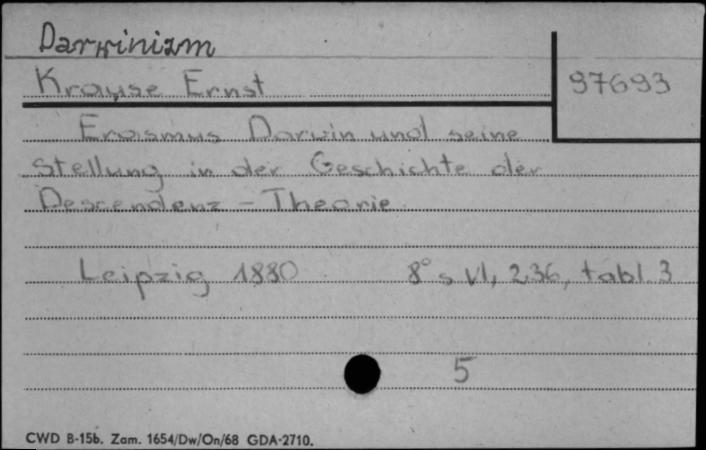 Darwinizm
Krause Ernst
97693
Erasmus Darwin und seine
Stellung in der Geschichte der
Descendenz - Theorie
Leipzig 1880 8° s VI, 236, tabl. 3
5
CWD B-15b. Zam. 1654/Dw/On/68 GDA-2710.